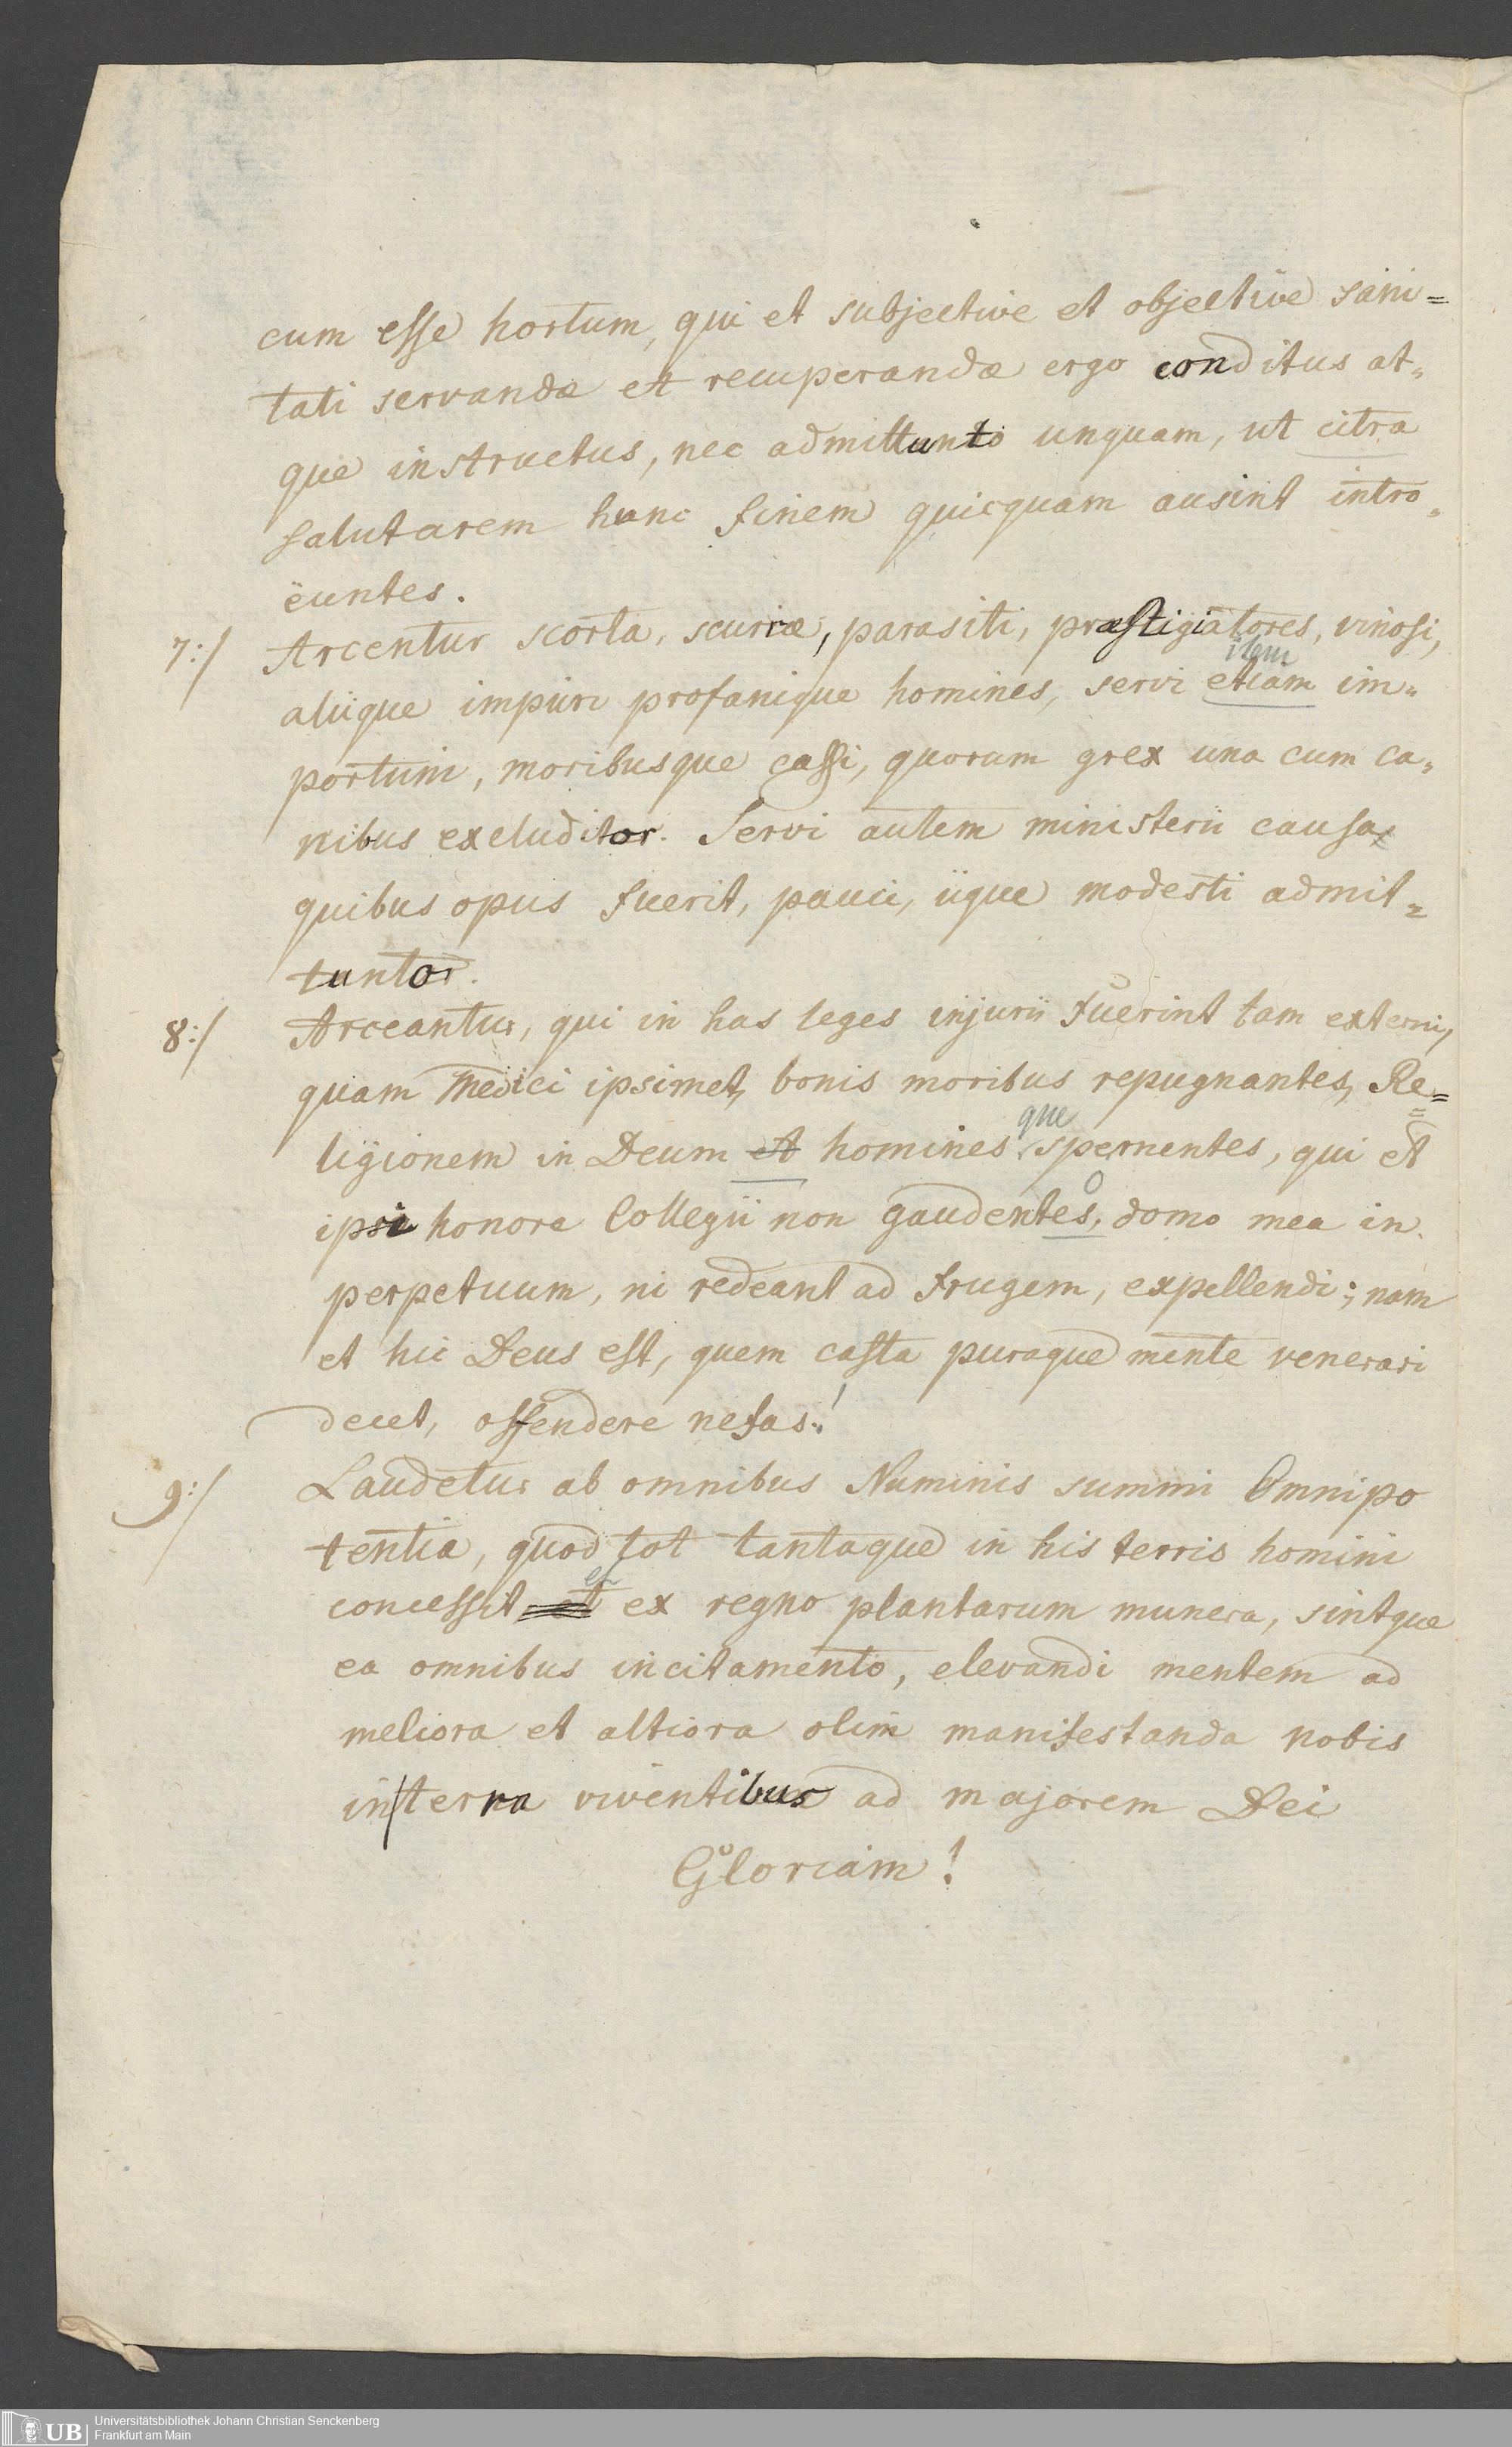 cum esse hortum, qui et subjective et objective sani=
tati servandæ et recuperandæ ergo conditus at„
que instructus, nec admittunto unquam, ut citra
salutarem hunc finem quicquam ausint intro„
ëuntes.
7:/ Arcentur scorta, scurræ, parasiti, præstigiatores, vinosi,
item
aliique impuri profanique homines, servi etiam im„
portuni, moribusque cassi, quorum grex una cum ca„
nibus excluditor. Servi autem ministerii causa
quibus opus fuerit, pauci, iique modesti admit=
tuntor.
8:/ Arceantur, qui in has leges injurii fuerint tam externi,
quam Medici ipsimet, bonis moribus repugnantes, Re=
que
ligionem in Deum et homines spernentes, qui et
ipsi honore Collegii non gaudentes, domo mea in
perpetuum, ni redeant ad frugem, expellendi; nam
et hic Deus est, quem casta puraque mente venerari
decet, offendere nefas!
9:/ Laudetur ab omnibus Numinis summi Omnipo
tentia, quod tot tantaque in his terris homini
concessit et ex regno plantarum munera, sintque
ea omnibus incitamento, elevandi mentem ad
meliora et altiora olim manifestanda nobis
in terra viventibus ad majorem Dei
Gloriam!
UB
Universitätsbibliothek Johann Christian Senckenberg
Frankfurt am Main